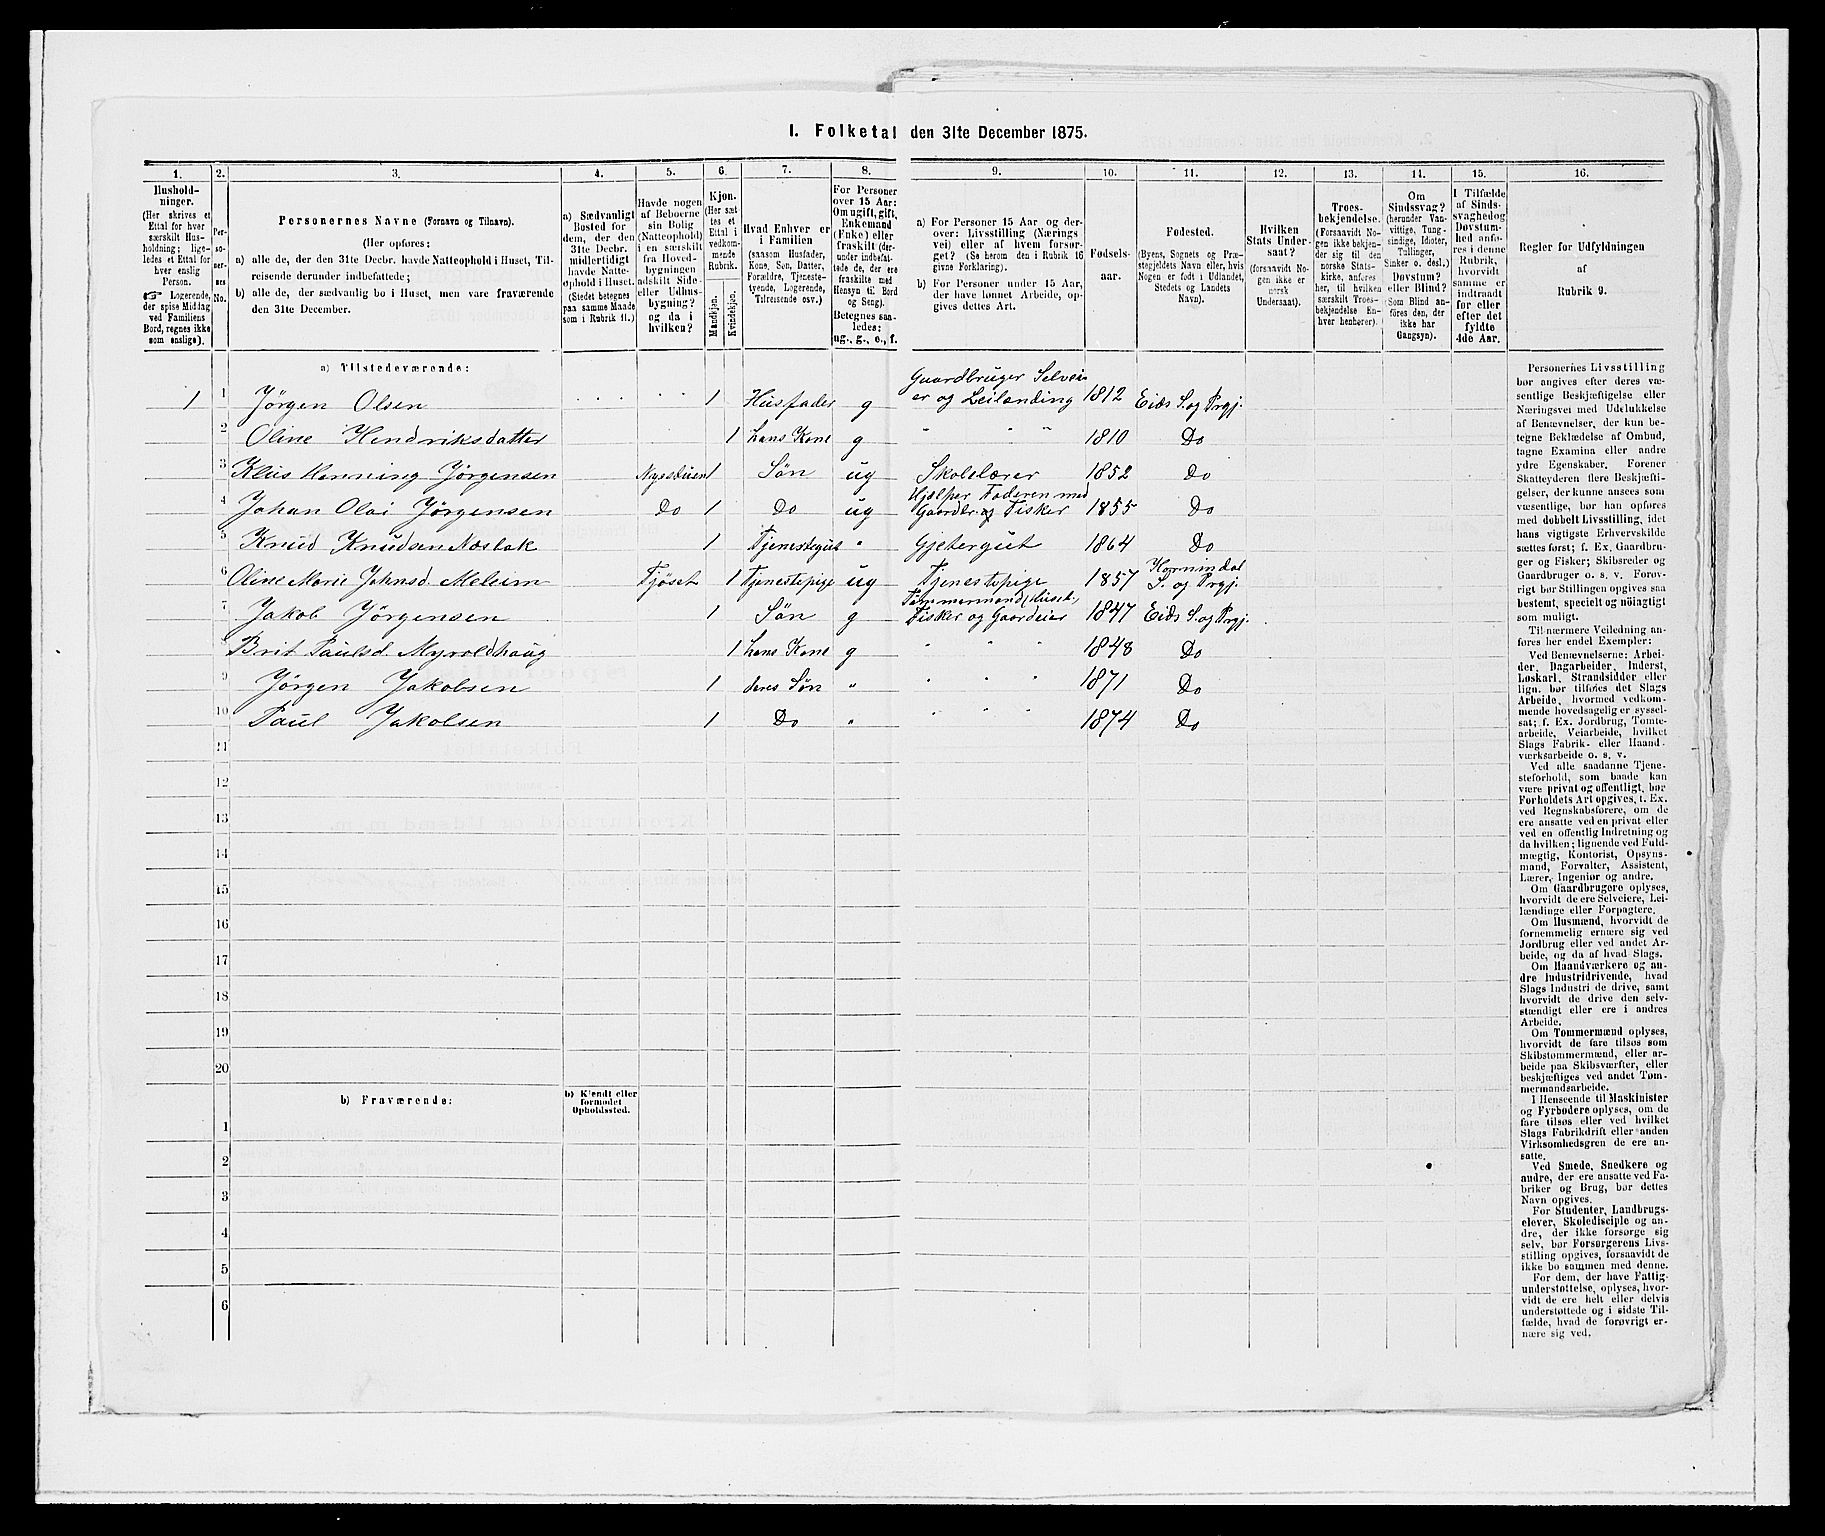 I. Folketal den 31te December 1875.
1. 2. 3. 4. 5. 6. 7. 8. 9. 10. 11. 12. 13. 14. 15. 16.
Hushold-
ninger.
(Her skrives et
Ettal for hver
særskilt Hus-
holdning; lige-
ledes et Ettal for
hver enslig
Person.
☞ Logerende,
der spise Middag
ved Familiens
Bord, regnes ikke
som enslige).
Per-
so-
ner-
nes
No.
Personernes Navne (Fornavn og Tilnavn).
(Her opføres:
a) alle de, der den 31te Decbr. havde Natteophold i Huset, Til-
reisende derunder indbefattede;
b) alle de, der sædvanlig bo i Huset, men vare fraværende
den 31te December.
a) Sædvanligt
Bosted for
dem, der den
31te Decbr.
midlertidigt
havde Natte-
ophold i Huset.
(Stedet betegnes
paa samme Maade
som i Rubrik 11.)
Havde nogen
af Beboerne
sin Bolig
(Natteophold)
i en særskilt
fra Hoved-
bygningen
adskilt Side-
eller Udhus-
bygning?
og da i
hvilken?
Kjøn.
(Her sæt
tes et
Ettal i
vedkom-
mende
Rubrik.
Mandkjøn.
Kvindekjøn.
Hvad Enhver er
i Familien
(saasom Husfader,
Kone, Søn, Datter,
Forældre, Tjeneste-
tyende, Logerende,
Tilreisende osv.)
For Personer
over 15 Aar:
Om ugift, gift,
Enkemand
(Enke) eller
fraskilt (der-
under indbefat-
tede de, der ere
fraskilte med
Hensyn til Bord
og Seng).
Betegnes saa-
ledes:
ug., g., e., f.
a) For Personer 15 Aar og der-
over: Livsstilling (Nærings
vei) eller af hvem forsør-
get? (Se herom den i Rubrik 16
givne Forklaring).
b) For Personer under 15 Aar,
der have lønnet Arbeide, op-
gives dettes Art.
Fødsels-
aar.
Fødested.
(Byens, Sognets og Præ-
stegjeldets Navn eller, hvis
Nogen er født i Udlandet,
Stedets og Landets
Navn).
Hvilken
Stats Under-
saat?
(forsaavidt No-
gen ikke er
norsk
Undersaat).
Troes-
bekjendelse.
(Forsaavidt No-
gen ikke bekjen-
der sig til den
norske Stats-
kirke, anføres
her, til hvilken
særskilt Troes-
bekjendelse En-
hver henhører).
Om
Sindssvag?
(herunder Van-
vittige, Tung-
sindige, Idioter,
Tullinger,
Sinker o. desl.)
Døvstum?
eller Blind?
(Som Blind an-
føres den, der
ikke har
Gangsyn).
I Tilfælde
af Sinds-
svaghed og
Døvstum-
hed anfø-
res i denne
Rubrik,
hvorvidt
samme er
indtraadt
før eller
efter det
fyldte
4de Aar.
Regler for Udfyldningen
af
Rubrik 9.
a) Tilstedeværende:
Gaardbruger Selvei-
1 1 Jørgen Olsen 1 Husfader g er og Leilænding 1812 Eids S. og Prgj.
2 Oline Hendriksdatter 1 hans Kone g " " " 1810 Do
3 Klus Henning Jørgensen 1 Søn ug Skolelærer 1852 Do
Hjælper Faderen med
4 Johan Olai Jørgensen Do 1 Do ug Gaardbr. og Fisker 1855 Do
5 Knud Knudsen Næsbak 1 Tjenestegut " Gjetergut 1864 Do
Hornindal
6 Oline Marie Johnsd. Meleim Fjøset 1 Tjenestepige ug Tjenestepige 1857 S. og Prgj.
Tømmermand (Huset),
7 Jakob Jørgensen 1 Søn g Fisker og Gaardeier 1847 Eids S. og Prgj.
8 Brit Paulsd. Myroldhaug 1 hans Kone g " " " 1848 Do
9 Jørgen Jakobsen 1 deres Søn " " " " 1871 Do
10 Paul Jakobsen 1 Do " " " " 1874 Do
11
12
13
14
15
16
17
18
19
20
b) Fraværende:
b) Kjendt eller
formodet
Opholdssted.
1
2
3
4
5
6
Personernes Livsstilling
bør angives efter deres væ-
sentlige Beskjæftigelse eller
Næringsvei med Udelukkelse
af Benævnelser, der kun be-
tegne Beklædelse af Ombud,
tagne Examina eller andre
ydre Egenskaber. Forener
Skatteyderen flere Beskjæfti-
gelser, der kunne ansees som
væsentlige, bør han opføres
med dobbelt Livsstilling, idet
hans vigtigste Erhvervskilde
sættes først; f. Ex. Gaardbru-
ger og Fisker; Skibsreder og
Gaardbruger o. s. v. Forøv-
rigt bør Stillingen opgives saa
bestemt, specielt og nøiagtigt
som muligt.
Til nærmere Veiledning an-
føres her endel Exempler:
Ved Benævnelserne: Arbei-
der, Dagarbeider, Inderst,
Løskarl, Strandsidder eller
lign. bør tilføies det Slags
Arbeide, hvormed vedkom-
mende hovedsagelig er syssel-
sat; f. Ex. Jordbrug, Tomte-
arbeide, Veiarbeide, hvilket
Slags Fabrik- eller Haand-
værksarbeide o. s. v.
Ved alle saadanne Tjene-
steforhold, som baade kan
være privat og offentligt, bør
Forholdets Art opgives, t. Ex.
ved Regnskabsførere, om de
ere ansatte ved en privat eller
ved en offentlig Indretning og
da hvilken; lignende ved Fuld-
mægtig, Kontorist, Opsyns-
mand, Forvalter, Assistent,
Lærer, Ingeniør og andre.
Om Gaardbrugere oplyses,
hvorvidt de ere Selveiere, Lei-
lændinge eller Forpagtere.
Om Husmænd, hvorvidt de
fornemmelig ernære sig ved
Jordbrug eller ved andet Ar-
beide, og da af hvad Slags.
Om Haandværkere og an-
dre Industridrivende, hvad
Slags Industri de drive, samt
hvorvidt de drive den selv-
stændigt eller ere i andres
Arbeide.
Om Tømmermænd oplyses,
hvorvidt de fare tilsøs som
Skibstømmermænd, eller ar-
beide paa Skibsværfter, eller
beskjæftiges ved andet Tøm-
mermandsarbeide.
I Henseende til Maskinister
og Fyrbødere oplyses, om de
fare tilsøs eller ved hvilket
Slags Fabrikdrift eller anden
Virksomhedsgren de ere an-
satte.
Ved Smede, Snedkere og
andre, der ere ansatte ved Fa-
briker og Brug, bør dettes
Navn opgives.
For Studenter, Landbrugs-
elever, Skoledisciple og an-
dre, der ikke forsørge sig
selv, bør Forsørgerens Livs-
stilling opgives, forsaavidt de
ikke bo sammen med denne.
For dem, der have Fattig-
understøttelse, oplyses, hvor-
vidt de ere helt eller delvis
understøttede og i sidste Til-
fælde, hvad de forøvrigt er-
nære sig ved.